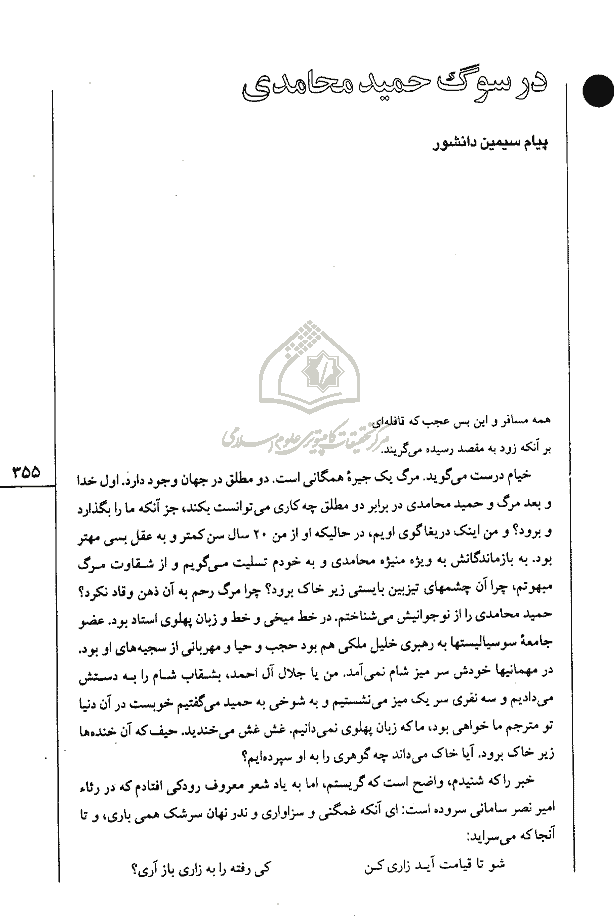 در سوگ حمید محامدی
پیام سیمین دانشور
همه مسافر و این بس عجب که قافله‌ای
مرکز تحقیقات کامپیوتری علوم اسلامی
بر آنکه زود به مقصد رسیده می‌گریند.
۳۵۵
خیام درست می‌گوید. مرگ یک جیرهٔ همگانی است. دو مطلق در جهان وجود دارد. اول خدا
و بعد مرگ و حمید محامدی در برابر دو مطلق چه کاری می‌توانست بکند، جز آنکه ما را بگذارد
و برود؟ و من اینک دریغاگوی اویم، در حالیکه او از من ۲۰ سال سن کمتر و به عقل بسی مهتر
بود. به بازماندگانش به ویژه منیژه محامدی و به خودم تسلیت می‌گویم و از شقاوت مرگ
مبهوتم، چرا آن چشمهای تیزبین بایستی زیر خاک برود؟ چرا مرگ رحم به آن ذهن وقاد نکرد؟
حمید محامدی را از نوجوانیش می‌شناختم. در خط میخی و خط و زبان پهلوی استاد بود. عضو
جامعهٔ سوسیالیستها به رهبری خلیل ملکی هم بود حجب و حیا و مهربانی از سجیه‌های او بود.
در مهمانیها خودش سر میز شام نمی‌آمد. من یا جلال آل احمد، بشقاب شام را به دستش
می‌دادیم و سه نفری سر یک میز می‌نشستیم و به شوخی به حمید می‌گفتیم خوبست در آن دنیا
تو مترجم ما خواهی بود، ما که زبان پهلوی نمی‌دانیم. غش غش می‌خندید. حیف که آن خنده‌ها
زیر خاک برود. آیا خاک می‌داند چه گوهری را به او سپرده‌ایم؟
خبر را که شنیدم، واضح است که گریستم، اما به یاد شعر معروف رودکی افتادم که در رثاء
امیر نصر سامانی سروده است: ای آنکه غمگنی و سزاواری و ندر نهان سرشک همی باری، و تا
آنجا که می‌سراید:
شو تا قیامت آید زاری کن کی رفته را به زاری باز آری؟